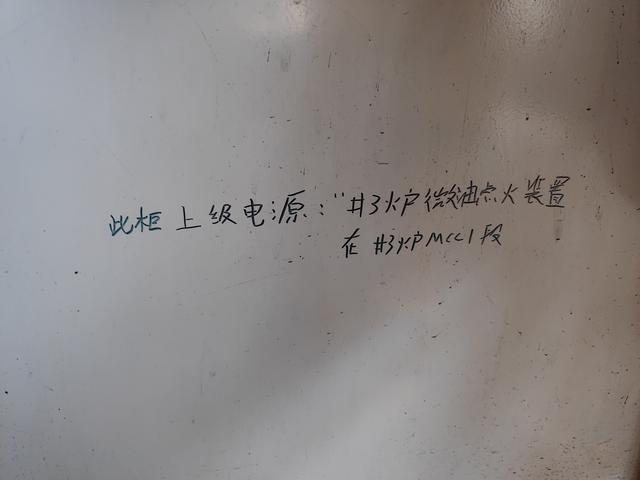 此柜上级电源："#3炉微油点火装置
在#3炉MCC1段